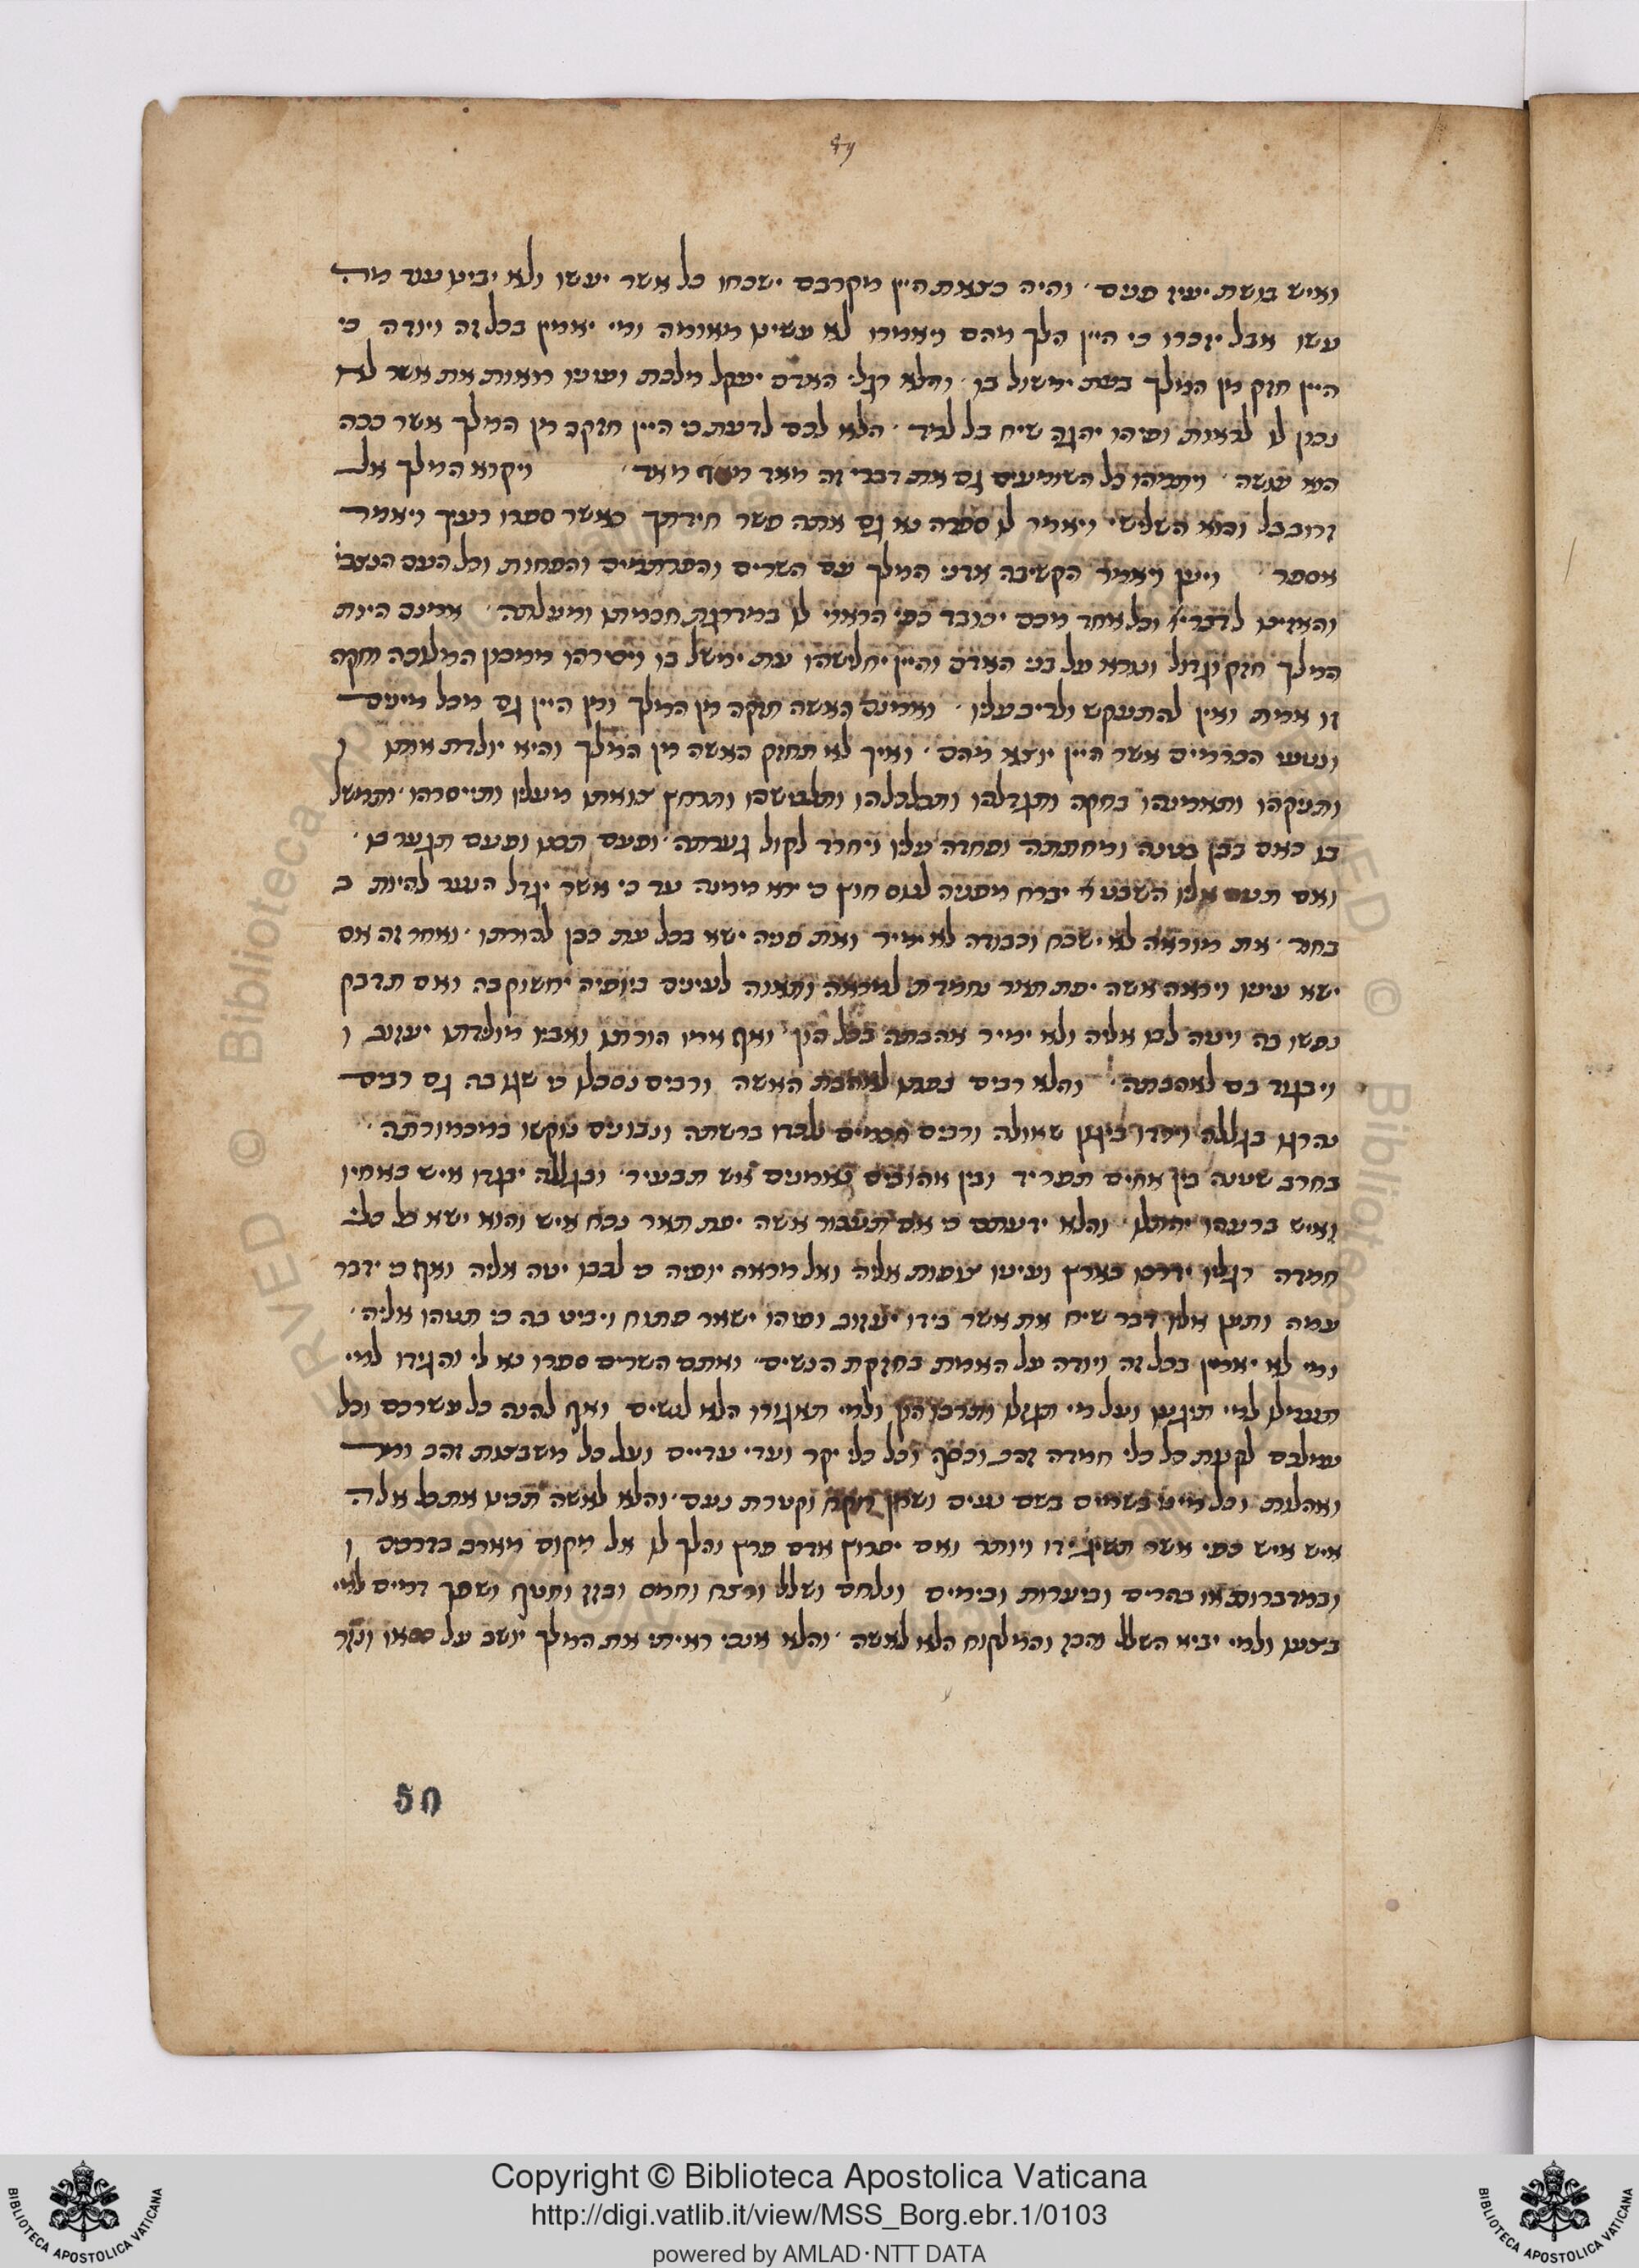 ואיש בושת יעיז פנים והיה כצאת היין מקרבם ישכחו כל אשר יעשו ולא יביטו עוד מה
עשו אבל יזכרו כי היין הלך מהם ויאמרו לא עשינו מאומה ומי יאמין בכל זה ויודה כי
היין חזק מן המלך בעת ימשול בו והלא רגלי האדם יעקל מלכת ועיניו מראות את אשר לא
נכון לו לראות ופיהו יהגה שיח בל לדבר הלא לכם לדעת כי היין חזק מן המלך אשר ככה
הוא עושה ויתמהו כל השומעים גם את דברי זה מאד מאד ויקרא המלך אל
זרובבל הוא השלישי ויאמר לו ספרה נא גם אתה פשר חידתך כאשר ספרו רעיך ויאמר
אספר ויען ויאמר הקשיבה אדני המלך עם השרים והפרתמים והפחות וכל העם הנצבי
והאזינו לדברי וכל אחד מכם יכובד כפי הראוי לו במדרגת חכמתו ומעלתו אמנם היות
המלך חזק וגדול ונורא על בני האדם והיין יחלישהו עת ימשל בו ויסירהו ממכון המלוכה חזקה
זו אמת ואין להתעקש ולריב עליו ואמנם האשה חזקה מן המלך ומן היין גם מכל מימים
ונטעי הכרמים אשר היין יוצא מהם ואיך לא תחזק האשה מן המלך והיא יולדת אותו ו
ותניקהו ותאמנהו בחקה ותגדלהו ותכלכלהו ותלבישהו ותרחץ צואתו מעליו ותייסרהו ותמשל
בו כאם בבן בטנה ומחתתה ופחדה עליו ויחרד לקול גערתה ופעם תכנו ופעם תגער בו
ואם אליו השבט יברח מפניה לנוס חוץ כי ירא ממנה עד כי אשר יגדל הנער להיות ב
בחור את מוראה לא ישכח וכבודה לא ימיר ואת פניה ישא בכל עת כבן להורתו ואחר זה אם
ישא עיניו ויראה אשה יפת תואר נחמדת למראה ותאוה לעינים ביופיה יחשוק בה ואם תדבק
נפשו בה ויטה לבו אליה ולא ימיר אהבתה בכל הון ואף אמו הורתו ואביו מולידתו יעזוב ו
ויבגוד בם לאהבתה והלא רבים לאהבת האשה ורבים נסכלו כי שגו בה גם רבים
נהרגו בגללה וירדו ביגון שאולה ורבים חכמים נלכדו ברשתה ונבונים נוקשו במכמורתה
בחרב שנונה בין אחים תפריד ובין אהובים נאמנים אש תבעיר ובגללה יבגדו איש באחיו
ואיש ברעהו יהתלו והלא ידעתם כי אם תעבור אשה יפת תאר נכח איש והוא ישא כל כלי
חמדה רגליו ידרכו בארץ ועיניו צופות אליה ואל מראה יופיה כי לבבו יטה אליה ואף כי ידבר
עמה ותען אליו דבר שיח את אשר בידו יעזוב ופיהו ישאר פתוח ויביט בה כי תטהו אליה
ומי לא יאמין בכל זה ויודה על האמת בחזקת הנשים ואתם השרים ספרו נא לי והגידו למי
תעמלו למי תיגעו ועל מי תגזלו ותרבו הון ולמי תאגרו הלא לנשים ואף להנה כל עשרכם וכל
עמלכם לקנות כל כלי חמדה זהב וכסף וכל כלי יקר ועדי עדיים ועל כל משבצות זהב ומר
ואהלות וכל מיני בשמים בשם ושמן רוקח וקטרת נעם והלא לאשה תביאו את כל אלה
איש איש כפי אשר תשיג ידו ויותר ואם יפרוץ אדם פרץ והלך לו אל מקום מארב בדרכים ו
ובמדברות או בהרים וביערות ובימים ונלחם ושלל ורצח וחמס ובזז וחטף ושפך דמים למי
בצעו ולמי יביא השלל והבז והמלקוח הלא לאשה והלא אנכי ראיתי את המלך יושב על כסאו ונזר
50
Copyright © Biblioteca Apostolica Vaticana
http://digi.vatlib.it/view/MSS_Borg.ebr.1/0103
powered by AMLAD·NTT DATA
BIBLIOTECA APOSTOLICA VATICANA
BIBLIOTECA APOSTOLICA VATICANA